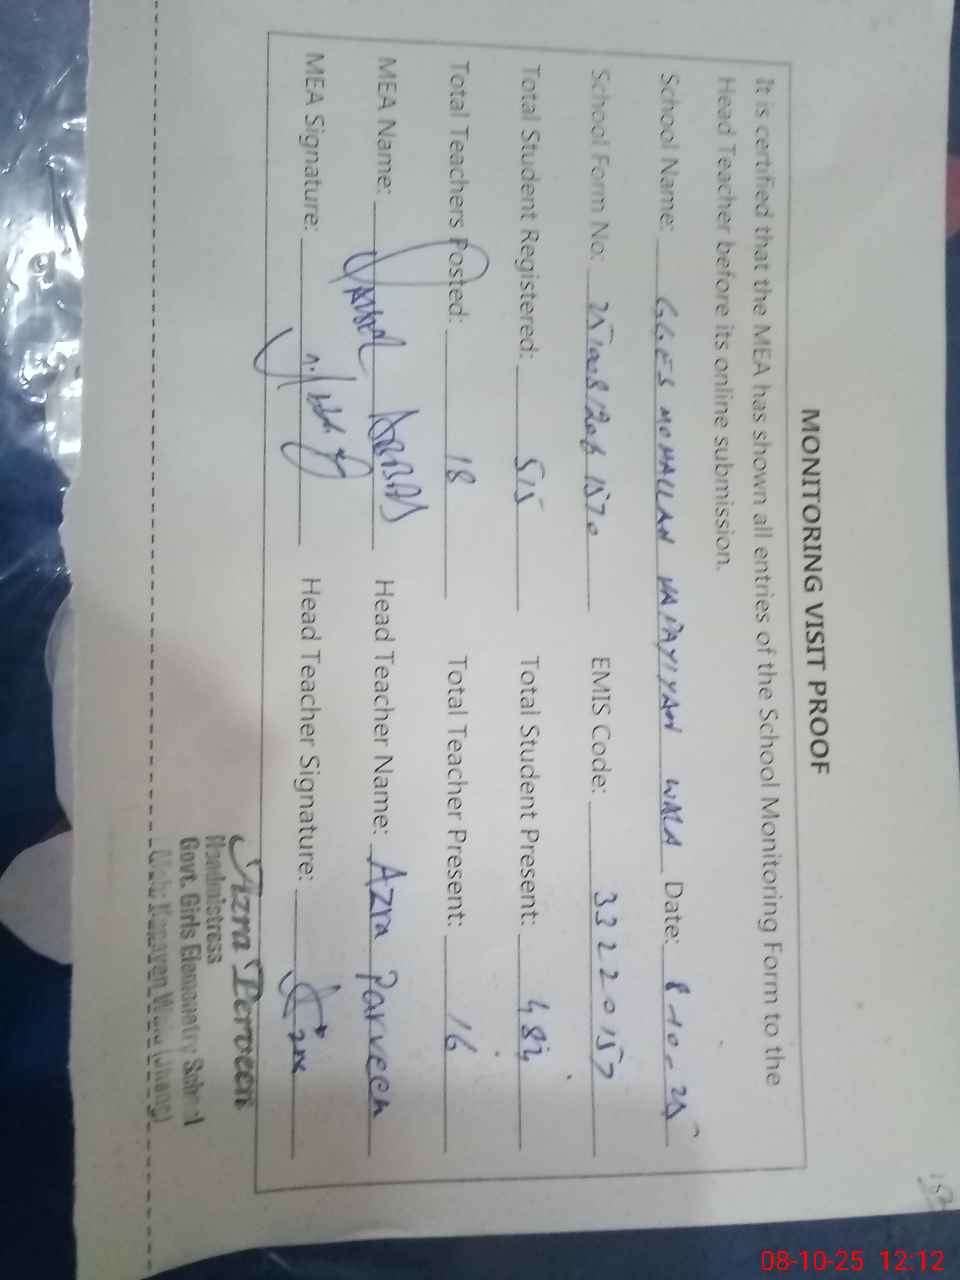 MONITORING VISIT PROOF
It is certified that the MEA has shown all entries of the School Monitoring Form to the
Head Teacher before its online submission.
School Name: GGES MOHALLAH WALA Date: 8-10-25
School Form No: EMIS Code: 33220157
Total Student Registered: 515 Total Student Present: 484
Total Teachers Posted: 18 Total Teacher Present: 16
MEA Name: ABBAS Head Teacher Name: Azra Parveen
MEA Signature: Head Teacher Signature:
Azra Perveen
Headmistress
Govt. Girls Elementry School
08-10-25 12:12